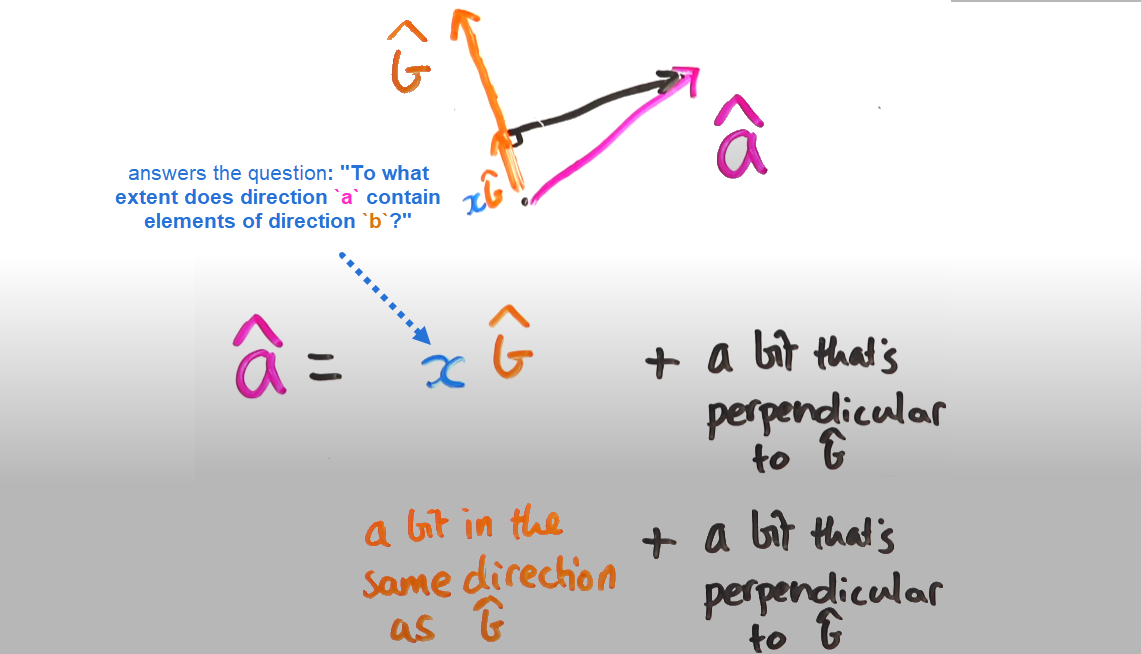 b̂
â
answers the question: "To what
extent does direction `a` contain
elements of direction `b`?"
xb̂
â = x b̂ + a bit that's
perpendicular
to b̂
a bit in the + a bit that's
same direction perpendicular
as b̂ to b̂